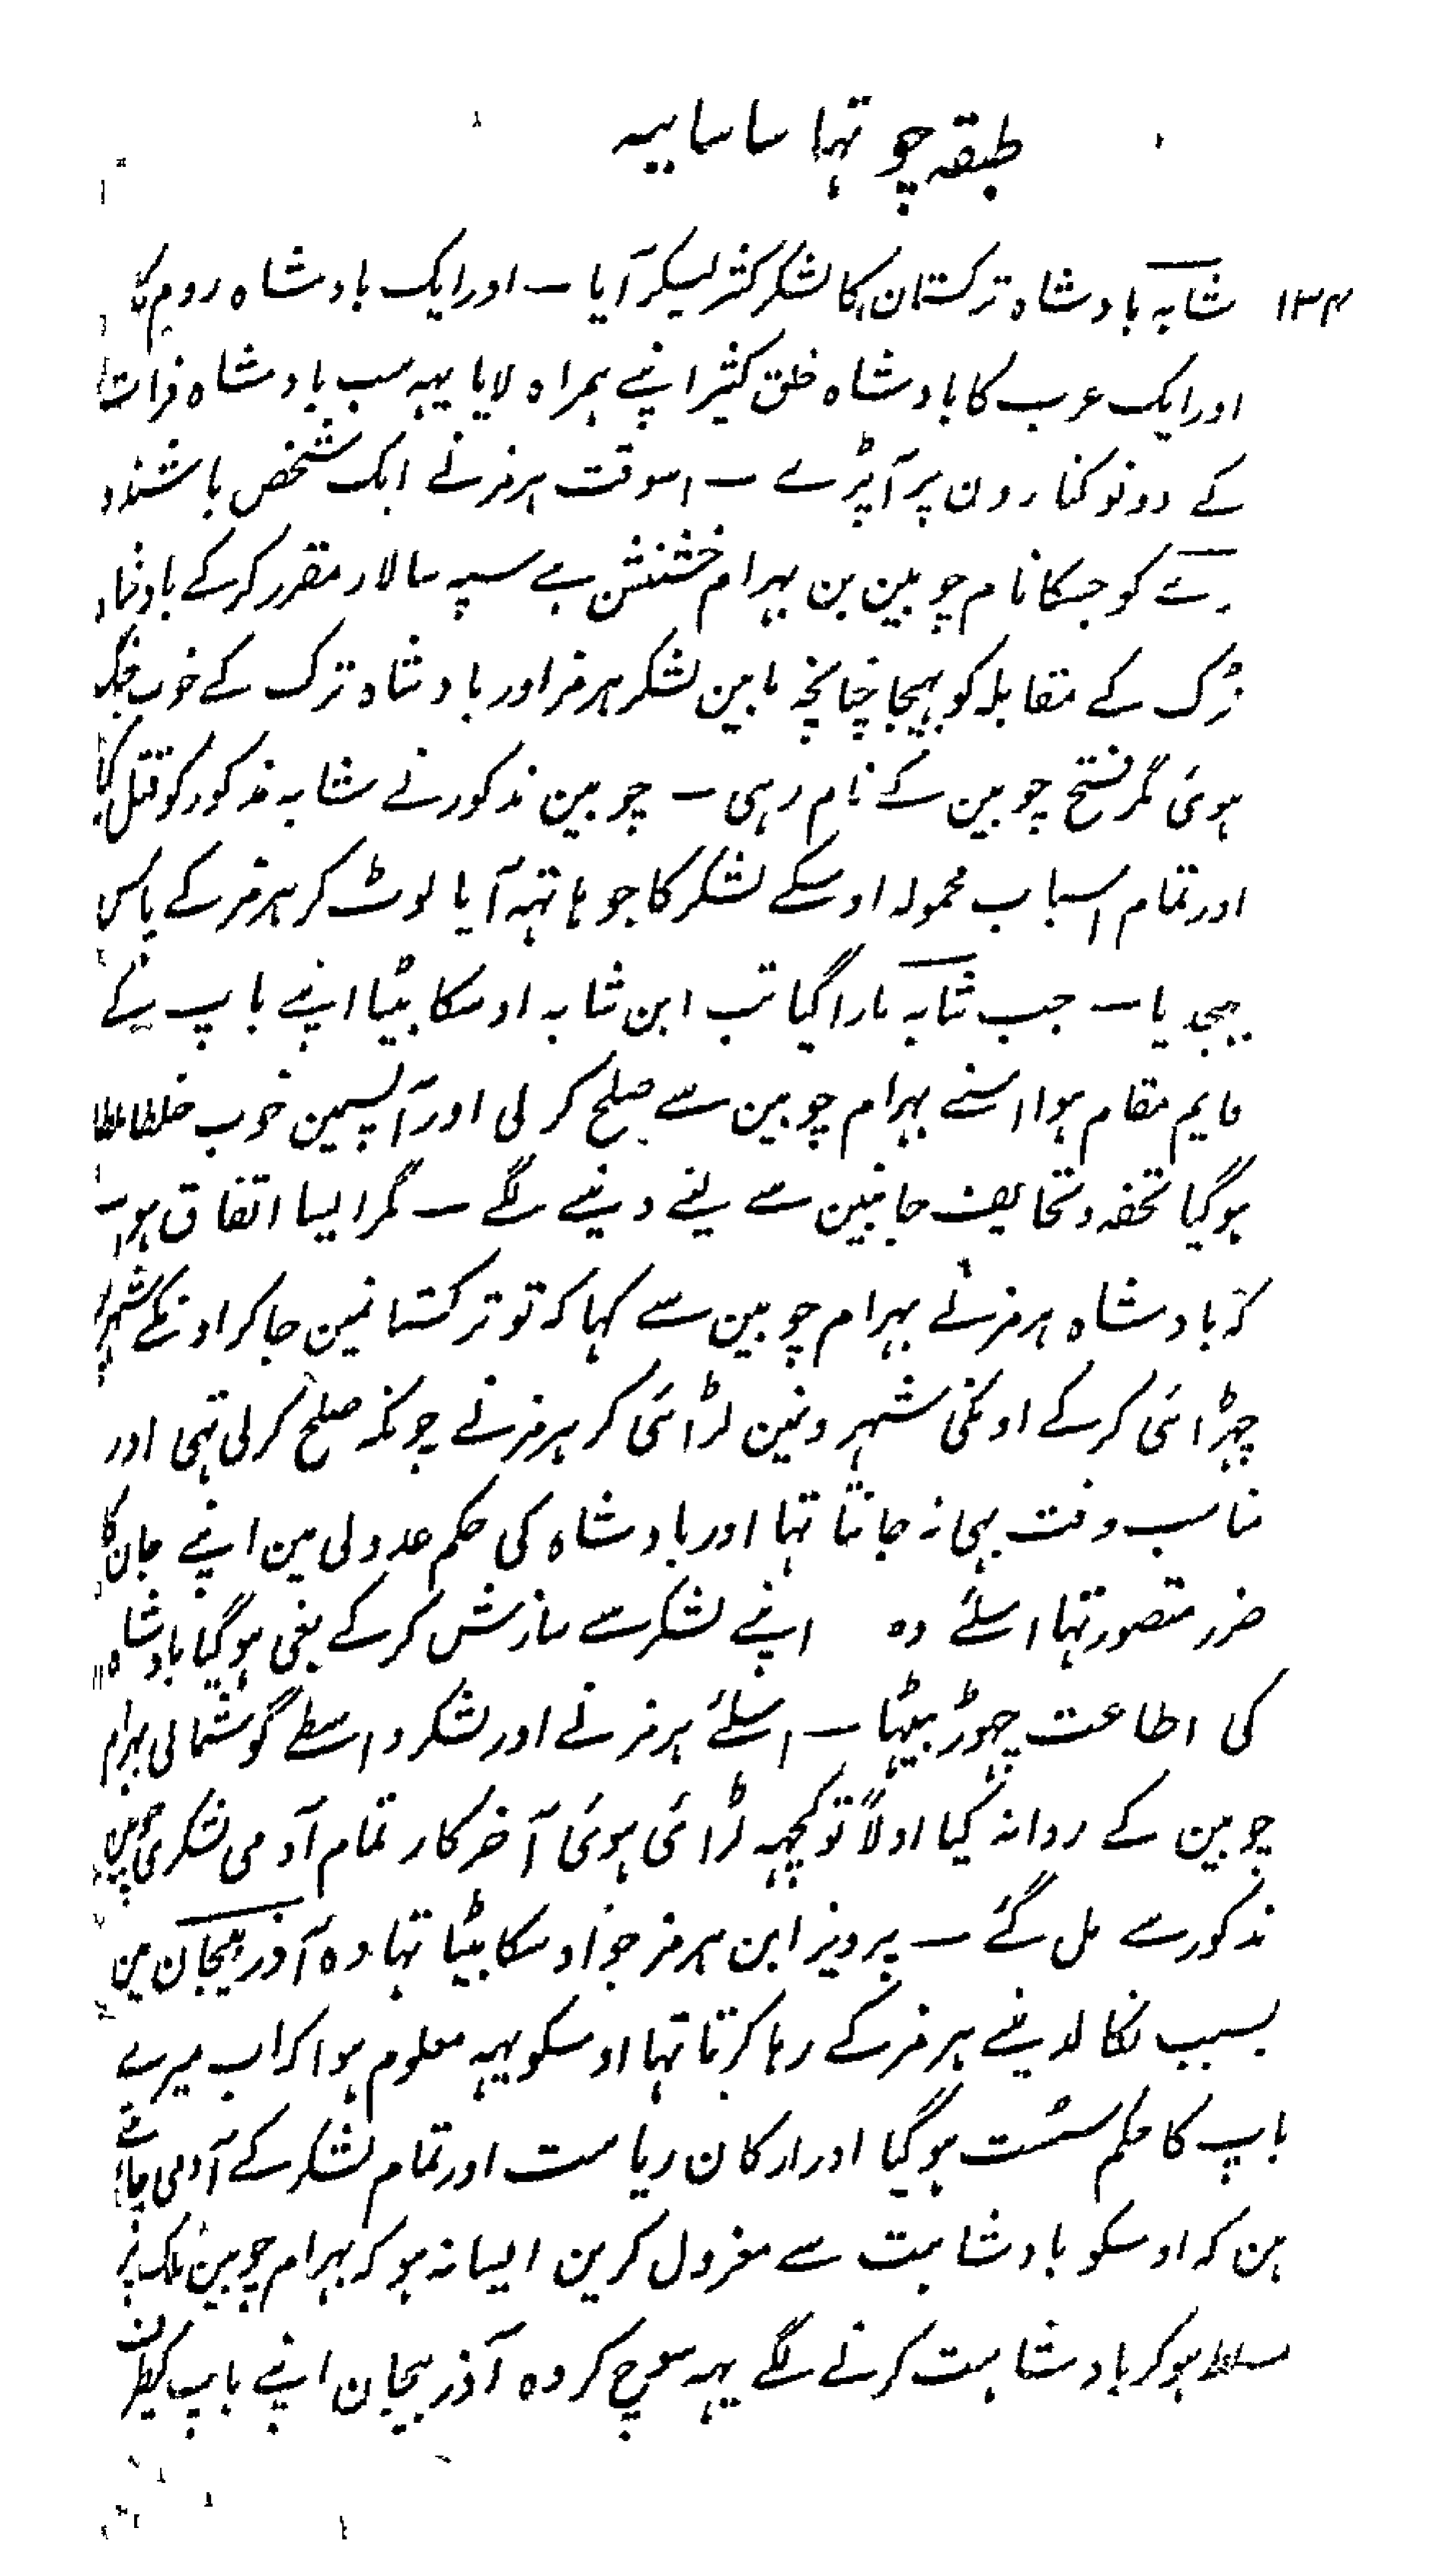 طبقہ چوتہا ساسانیہ
۱۳۴ شابہ بادشاہ ترکستان کا لشکر کثیر لیکر آیا ــ اور ایک بادشاہ روم کا
اور ایک عرب کا بادشاہ خلق کثیر اپنے ہمراہ لایا یہہ سب بادشاہ فرات
کے دونو کنارون پر آپڑے ــ اسوقت ہرمز نے ایک شخص باشندہ
رے کو جسکا نام چوبین بن بہرام خشنش ہے سپہ سالار مقرر کر کے بادشاہ
ترک کے مقابلہ کو بہیجا چنانچہ مابین لشکر ہرمز اور بادشاہ ترک کے خوب جنگ
ہوئی مگر فتح چوبین کے نام رہی ــ چوبین مذکور نے شابہ مذکور کو قتل کیا
اور تمام اسباب محمولہ اوسکے لشکر کا جو ہاتہہ آیا لوٹ کر ہرمز کے پاس
بہیجدیا ــ جب شابہ مارا گیا تب ابن شابہ اوسکا بیٹا اپنے باپ کے
قایم مقام ہوا اسنے بہرام چوبین سے صلح کر لی اور آپسمین خوب
ہوگیا تحفہ و تحایف جانبین سے لینے دینے لگے ــ مگر ایسا اتفاق ہوا
کہ بادشاہ ہرمز نے بہرام چوبین سے کہا کہ تو ترکستانمین جاکر اونکے
چہڑائی کر کے اونکی شہرونمین لڑائی کر ہرمز نے چونکہ صلح کر لی تہی اور
مناسب وقت بہی نہ جانتا تہا اور بادشاہ کی حکم عدولی مین اپنے جان کا
ضرر متصور تہا اسلئے وہ اپنے لشکر سے سازش کر کے بغی ہوگیا بادشاہ
کی اطاعت چہوڑ بیٹہا ــ اسلئے ہرمز نے اور لشکر واسطے گوشمالی بہرام
چوبین کے روانہ کیا اولاً تو کچہہ لڑائی ہوئی آخر کار تمام آدمی لشکری چوبین
مذکور سے مل گئے ــ پرویز ابن ہرمز جو اوسکا بیٹا تہا وہ آذربیجان مین
بسبب نکالدینے ہرمز کے رہا کرتا تہا اوسکو یہہ معلوم ہوا کہ اب میرے
باپ کا حکم سست ہوگیا اور ارکان ریاست اور تمام لشکر کے آدمی چاہتے
ہین کہ اوسکو بادشاہت سے معزول کرین ایسا نہ ہو کہ بہرام چوبین ملک پر
مسلط ہوکر بادشاہت کرنے لگے یہہ سوچ کر وہ آذربیجان اپنے باپ کیطرف